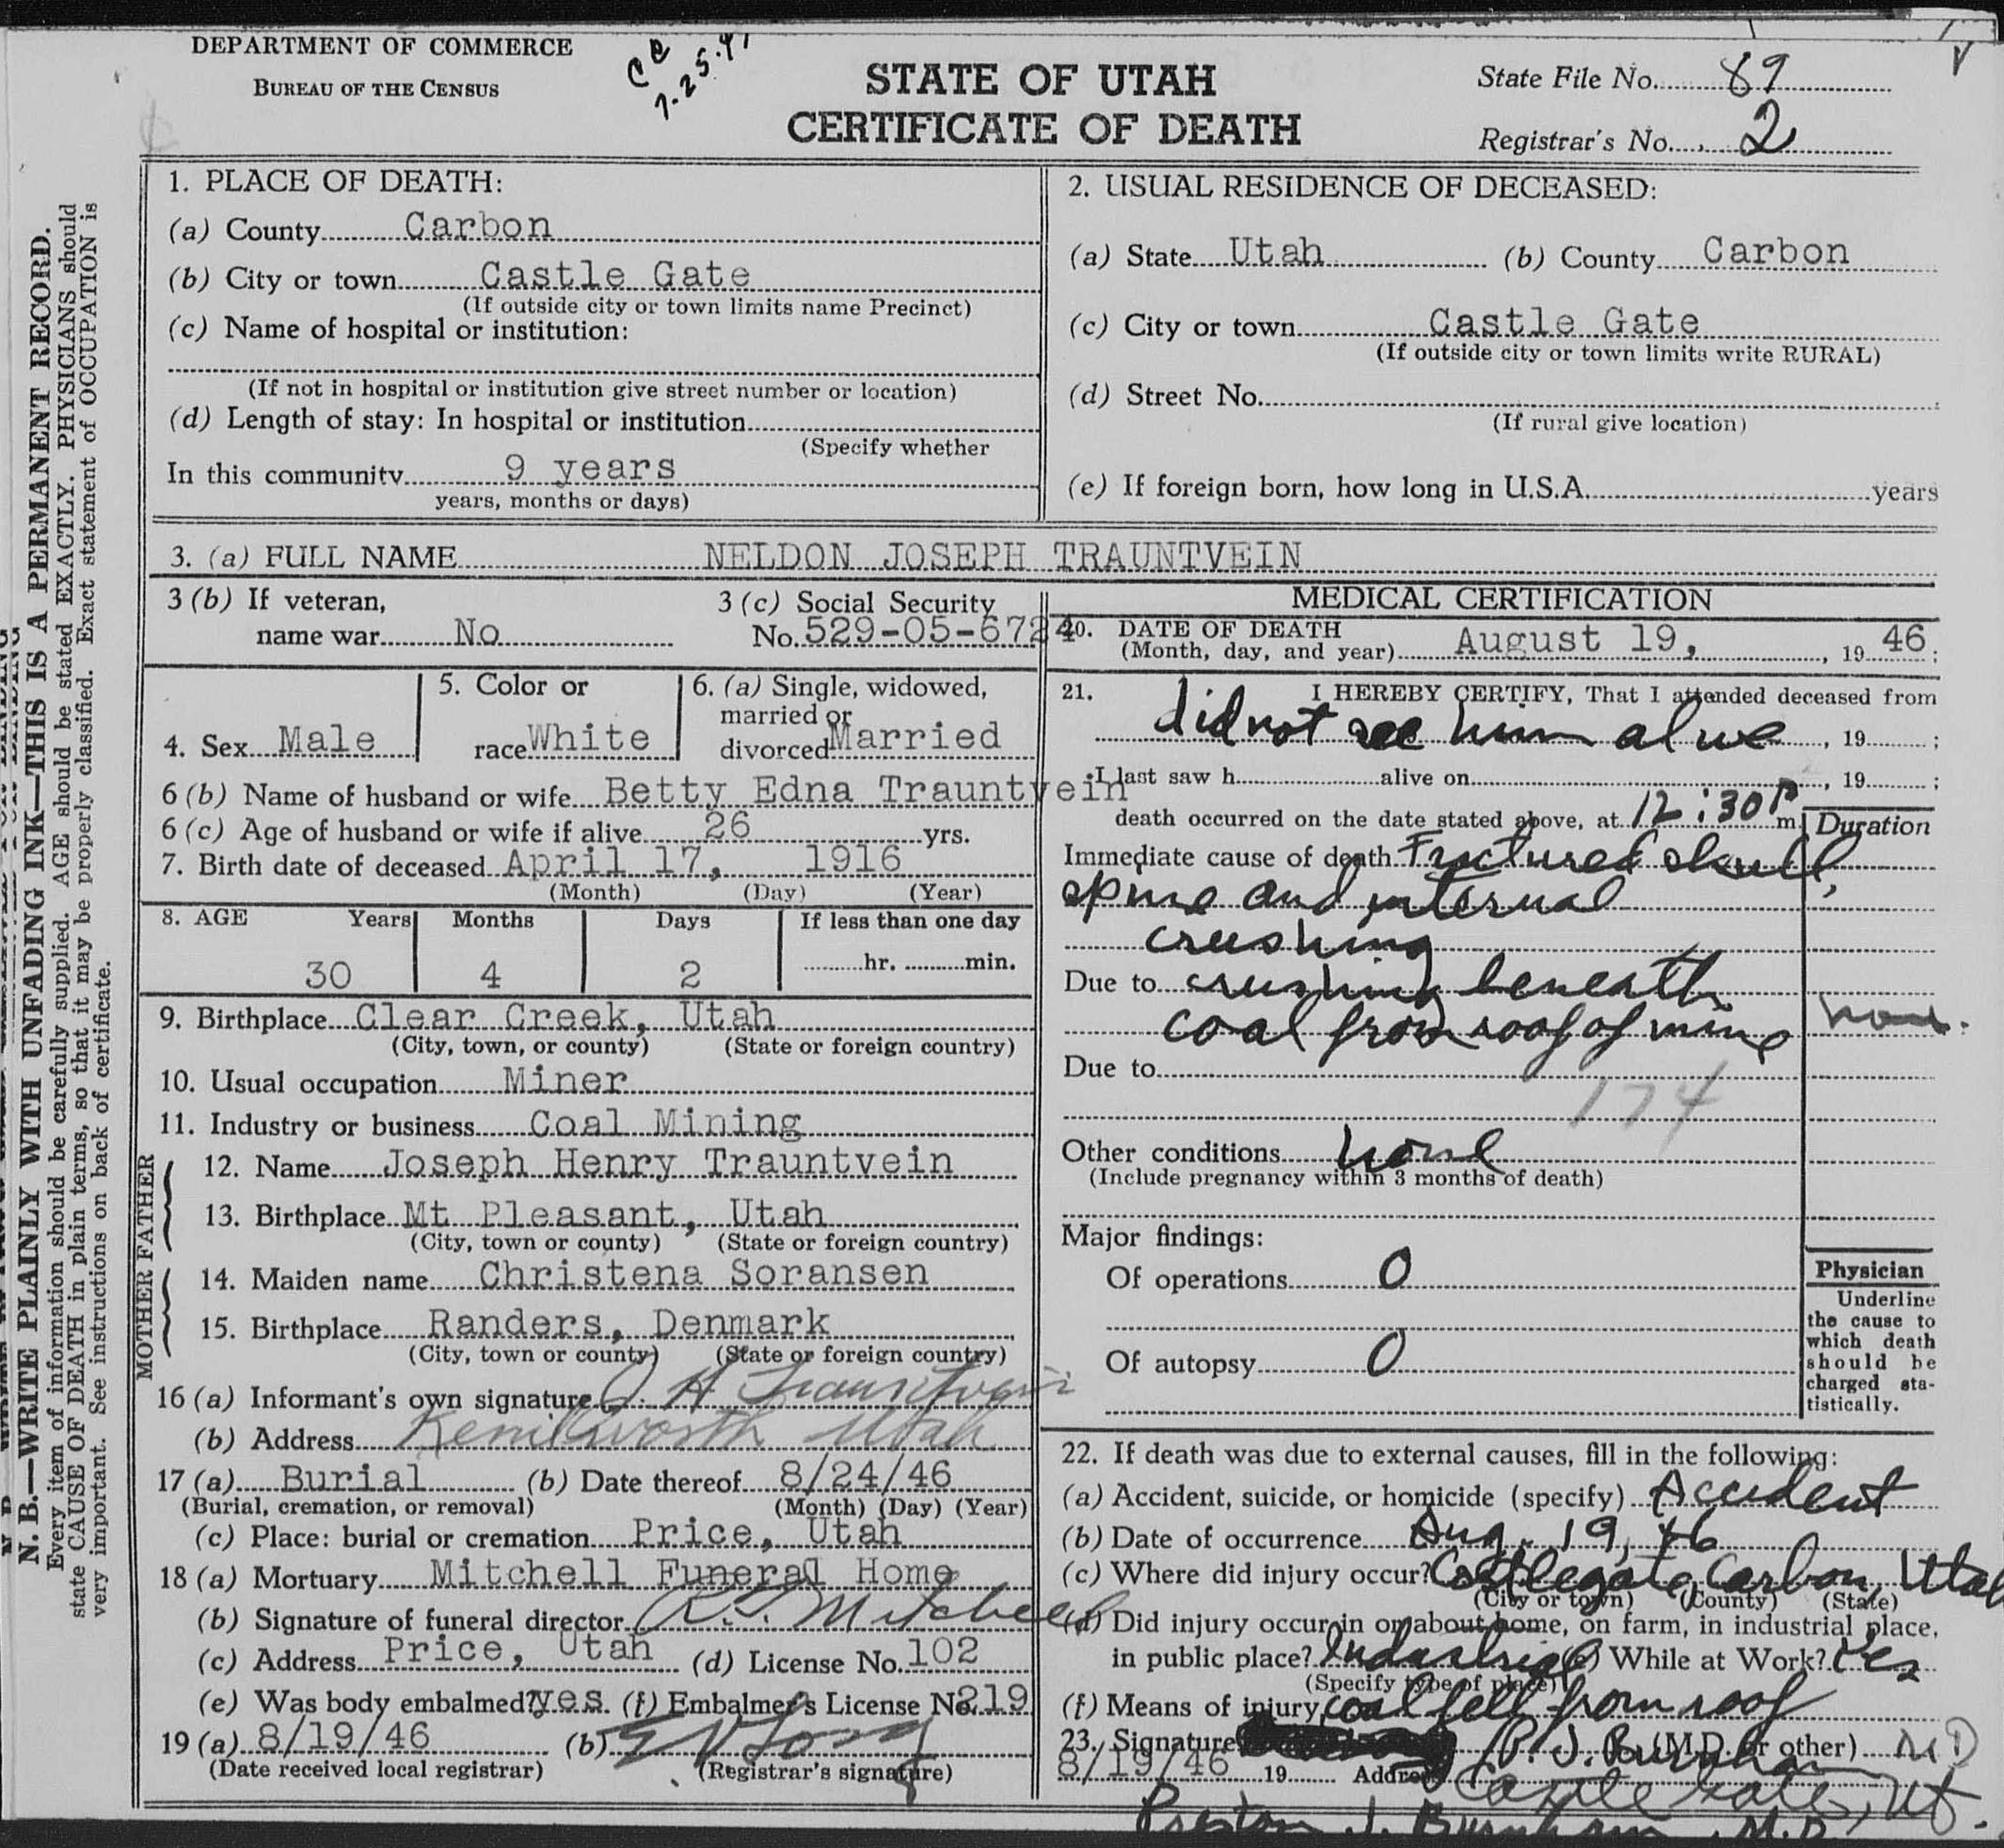 DEPARTMENT OF COMMERCE
BUREAU OF THE CENSUS
STATE OF UTAH
CERTIFICATE OF DEATH
State File No. 89
Registrar's No. 2
N. B.—WRITE PLAINLY WITH UNFADING INK—THIS IS A PERMANENT RECORD.
Every item of information should be carefully supplied. AGE should be stated EXACTLY. PHYSICIANS should
state CAUSE OF DEATH in plain terms, so that it may be properly classified. Exact statement of OCCUPATION is
very important. See instructions on back of certificate.
1. PLACE OF DEATH:
(a) County Carbon
(b) City or town Castle Gate
(If outside city or town limits name Precinct)
(c) Name of hospital or institution:
(If not in hospital or institution give street number or location)
(d) Length of stay: In hospital or institution
(Specify whether
In this community 9 years
years, months or days)
2. USUAL RESIDENCE OF DECEASED:
(a) State Utah (b) County Carbon
(c) City or town Castle Gate
(If outside city or town limits write RURAL)
(d) Street No.
(If rural give location)
(e) If foreign born, how long in U.S.A. years
3. (a) FULL NAME NELDON JOSEPH TRAUNTVEIN
3 (b) If veteran,
name war No
3 (c) Social Security
No. 529-05-6724
4. Sex Male
5. Color or
race White
6. (a) Single, widowed,
married or
divorced Married
6 (b) Name of husband or wife Betty Edna Trauntvein
6 (c) Age of husband or wife if alive 26 yrs.
7. Birth date of deceased April 17, 1916
(Month) (Day) (Year)
8. AGE Years Months Days If less than one day
30 4 2 hr. min.
9. Birthplace Clear Creek, Utah
(City, town, or county) (State or foreign country)
10. Usual occupation Miner
11. Industry or business Coal Mining
FATHER
12. Name Joseph Henry Trauntvein
13. Birthplace Mt Pleasant, Utah
(City, town or county) (State or foreign country)
MOTHER
14. Maiden name Christena Soransen
15. Birthplace Randers, Denmark
(City, town or county) (State or foreign country)
16 (a) Informant's own signature J. H Trauntvein
(b) Address Kenilworth Utah
17 (a) Burial (b) Date thereof 8/24/46
(Burial, cremation, or removal) (Month) (Day) (Year)
(c) Place: burial or cremation Price, Utah
18 (a) Mortuary Mitchell Funeral Home
(b) Signature of funeral director Mitchell
(c) Address Price, Utah (d) License No. 102
(e) Was body embalmed? yes. (f) Embalmer's License No. 219
19 (a) 8/19/46 (b)
(Date received local registrar) (Registrar's signature)
MEDICAL CERTIFICATION
20. DATE OF DEATH
(Month, day, and year) August 19, , 19 46 ;
21. I HEREBY CERTIFY, That I attended deceased from
did not see him alive , 19 ;
I last saw h alive on , 19 ;
death occurred on the date stated above, at 12:30 P m.
Duration
Immediate cause of death Fractured skull,
spine and internal
crushing
Due to crushing beneath
coal from roof of mine
Due to
174
Other conditions none
(Include pregnancy within 3 months of death)
Major findings:
Of operations 0
Of autopsy 0
Physician
Underline
the cause to
which death
should be
charged sta-
tistically.
22. If death was due to external causes, fill in the following:
(a) Accident, suicide, or homicide (specify) Accident
(b) Date of occurrence Aug. 19, 46
(c) Where did injury occur? Castlegate, Carbon, Utah
(City or town) (County) (State)
(d) Did injury occur in or about home, on farm, in industrial place,
in public place? Industrial (e) While at Work? Yes
(Specify type of place)
(f) Means of injury coal fell from roof
23. Signature P. J. Burnham (M.D. or other) MD
8/19/46 19 Address Castle Gate, Ut.
Preston J. Burnham M.D.